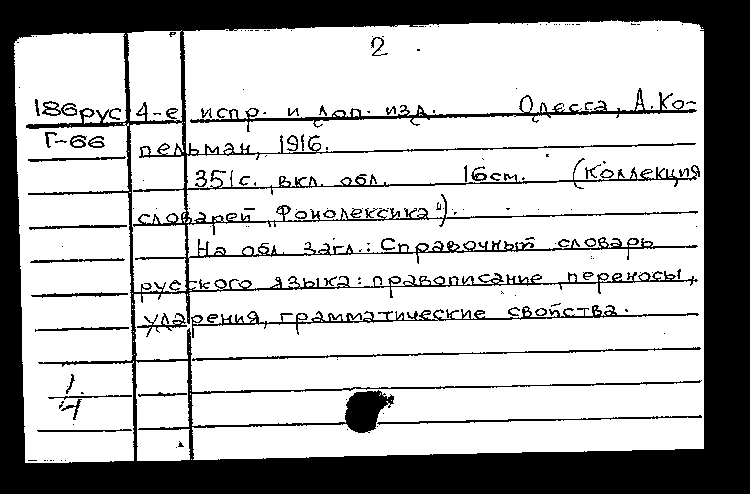 2.
186рус 4-е испр. и доп. изд. Одесса, А. Ко-
Г-66 пельман, 1916.
351с., вкл. обл. 16см. (Коллекция
словарей „Фонолексика").
На обл. загл.: Справочный словарь
русского языка: правописание, переносы,
ударения, грамматические свойства.
1/4